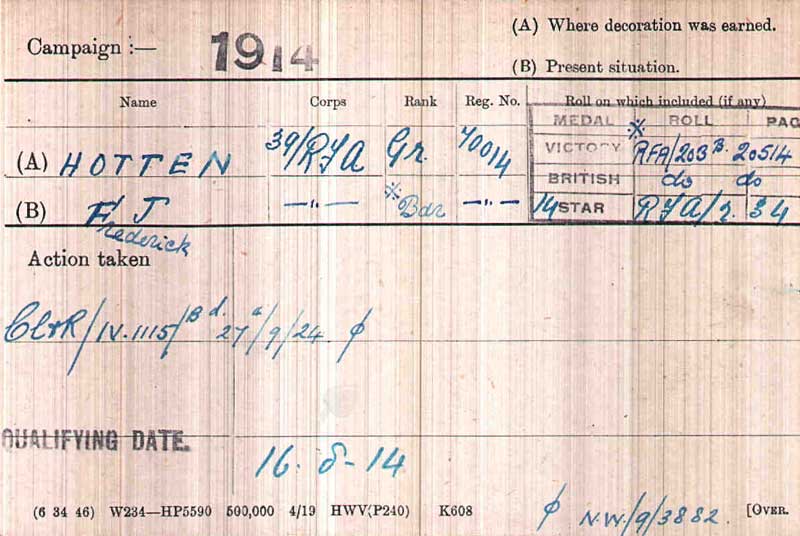 Campaign :— 1914
(A) Where decoration was earned.
(B) Present situation.
Name Corps Rank Reg. No. Roll on which included (if any)
MEDAL ※ ROLL PAG
(A) HOTTEN 39/RFA Gr. 70014 VICTORY RFA/203B. 20514
BRITISH do do
(B) F J —"— ※Bdr —"— 14 STAR RFA/2. 34
Frederick
Action taken
Cl&R/IV.1115/Bd. 27/9/24 ϕ
QUALIFYING DATE. 16-8-14
(6 34 46) W234—HP5590 500,000 4/19 HWV(P240) K608 ϕ N.W/9/3882. [OVER.